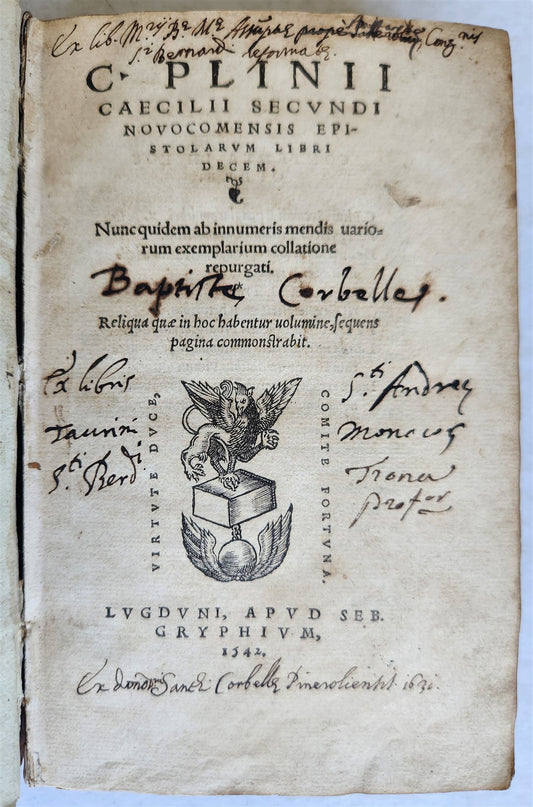 Ex lib. Mrij Bae Mae Cong nis
Sti Bernardi reformatae
C. PLINII
CAECILII SECVNDI
NOVOCOMENSIS EPI-
STOLARVM LIBRI
DECEM.
Nunc quidem ab innumeris mendis uario-
rum exemplarium collatione
repurgati.
Baptiste Corbelles.
Reliqua quæ in hoc habentur uolumine, sequens
pagina commonstrabit.
Ex libris
Taurini
Sti Berdi
Sti Andreę
Monacos
VIRTVTE DVCE,
COMITE FORTVNA.
LVGDVNI, APVD SEB.
GRYPHIVM,
1542.
Ex dono Corbellę Pineroliensis 1631.